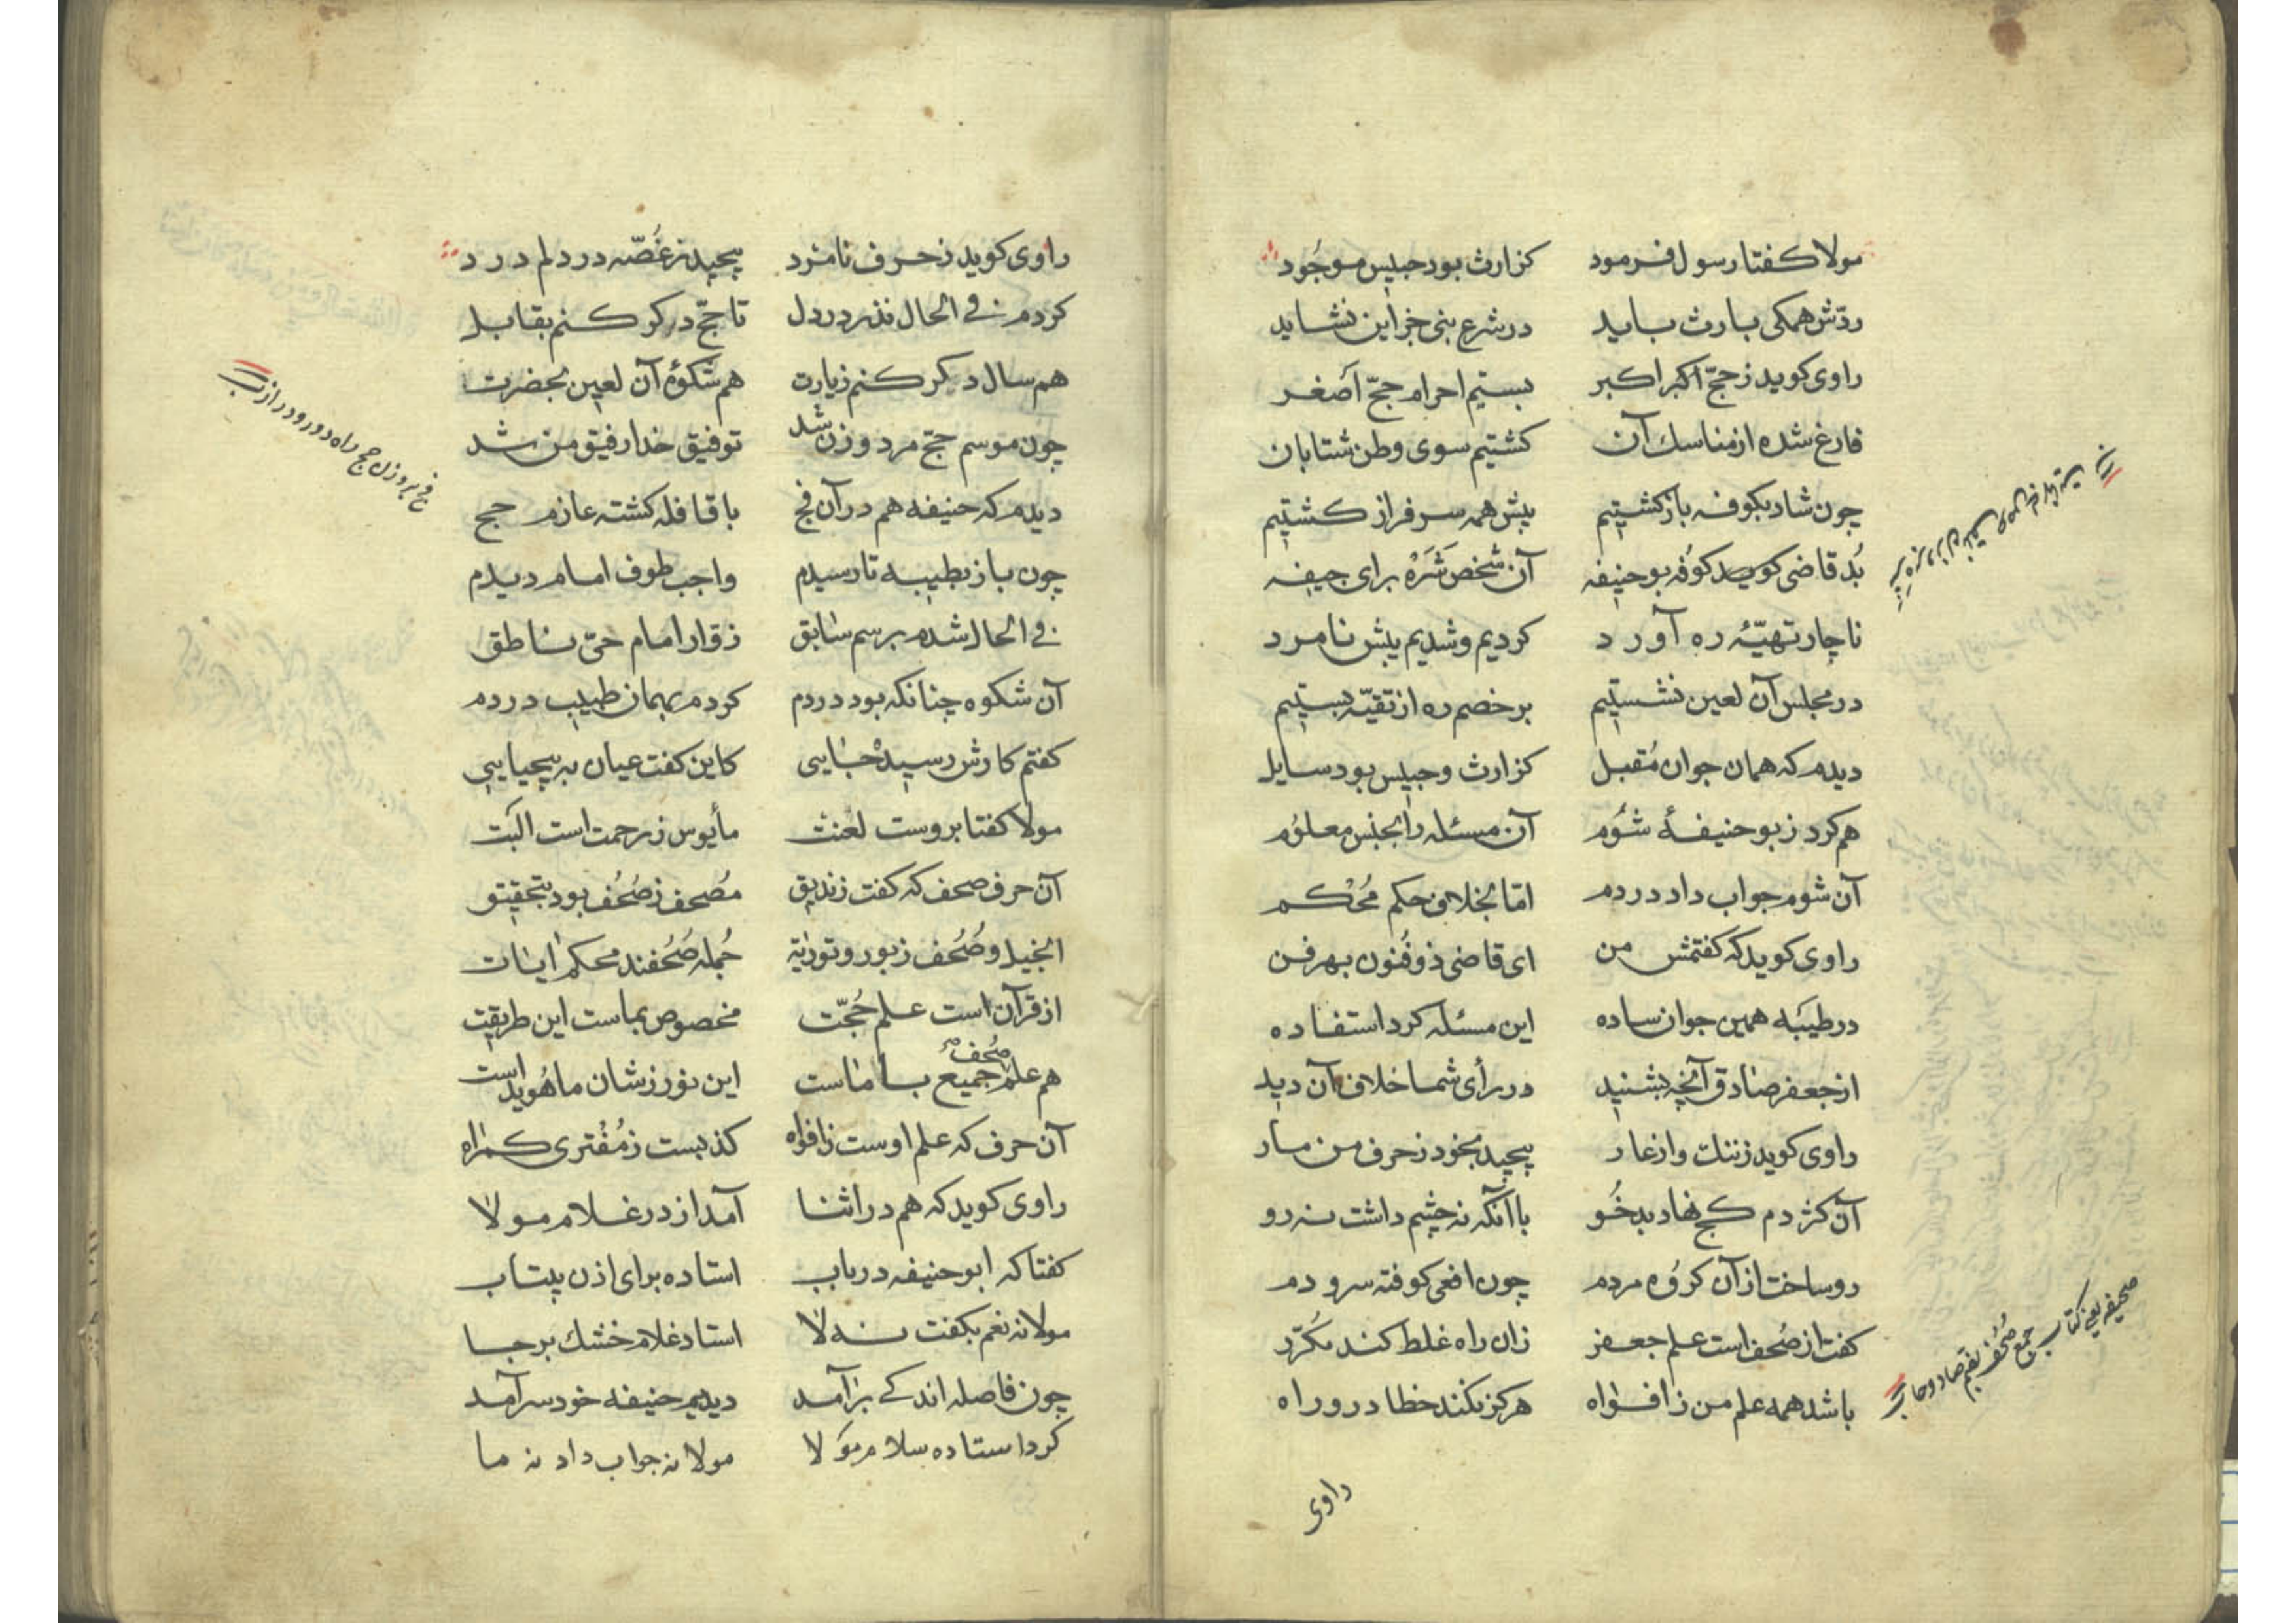 مولا کفتا رسول فرمود کز ارث بود حبیس موجود
ردّش همکی بارث باید در شرع نبی جز این نشاید
راوی کوید ز حجّ اکبر اکبر بستیم احرام حجّ اصغر
فارغ شده از مناسك آن کشتیم سوی وطن شتابان
چون شاد بکوفه باز کشتیم پیش همه سرفراز کشتیم
بُد قاضی کوفه بوحنیفه آن شخص شَرَهْ برای جیفه
ناچار تهیّهٔ ره آورد کردیم و شدیم پیش نامرد
در مجلس آن لعین نشستیم بر خصم ره از تقیّه بستیم
دیدم که همان جوان مُقبل کز ارث و حبیس بود سایل
هم کرد ز بوحنیفهٔ شوُم آن مسئله را بجنس معلوُم
آن شوم جواب داد در دم امّا بخلاف حکم مُحْکم
راوی کوید که کفتمش من ای قاضی ذوفُنون بهر فن
در طیبَه همین جوان ساده این مسئله کرد استفاده
از جعفر صادق آنچه بشنید در رأی شما خلاف آن دید
راوی کوید ز ننك و از عار پیچید بخود ز حرف من مار
آن کژدم کج نهاد بدخُو با آنکه نه چشم داشت نه رو
رو ساخت از آن کروُه مردم چون افعی کوفته سر و دم
کفت از صُحف است علم جعفر زان راه غلط کند مکُرّر
باشد همه علم من ز افواه هرکز نکند خطا در و راه
راوی
صحیفه یعنی کتاب جمع صُحُف بضم صاد و حا
راوی کوید ز حرف نامرد پیچید ز غُصّه در دلم درد
کردم فی الحال نذر در دل تا حجّ دکر کنم بقابل
هم سال دکر کنم زیارت هم شکوهٔ آن لعین بحضرت
چون موسم حجّ مرد و زن شد توفیق خدا رفیق من شد
دیدم که حنیفه هم در آن فج با قافله کشته عازم حج
چون باز بطیبه تا رسیدم واجب طوف امام دیدم
فی الحال شدم برسم سابق زوّار امام حقّ ناطق
آن شکوه چنانکه بود دردم کردم بهمان طبیب دردم
کفتم کارش رسید جایی کاین کفت عیان به بیحیایی
مولا کفتا بروست لعنت مأیوس ز رحمت است البت
آن حرف صحف که کفت زندیق مُصحف ز صُحُف بود بتحقیق
انجیل و صُحُف زبور و توریة جُمله صُحُفند محکم ایات
از قرآن است علم حُجّت مخصوص بماست این طریقت
هم علم صُحُف جمیع با ماست این نور ز شان ما هُویداست
آن حرف که علم اوست ز افواه کذبست ز مُفْتری کمراه
راوی کوید که هم در اثنا آمد از در غلام مولا
کفتا که ابوحنیفه در باب استاده برای اذن بیتاب
مولا نه نعم بکفت نه لا استاد غلام خشك بر جا
چون فاصله اندکی برآمد دیدیم حنیفه خود سرآمد
کرد استاده سلام مَولا مولا نه جواب داد نه ما
فج بر وزن حج راه دور و دراز